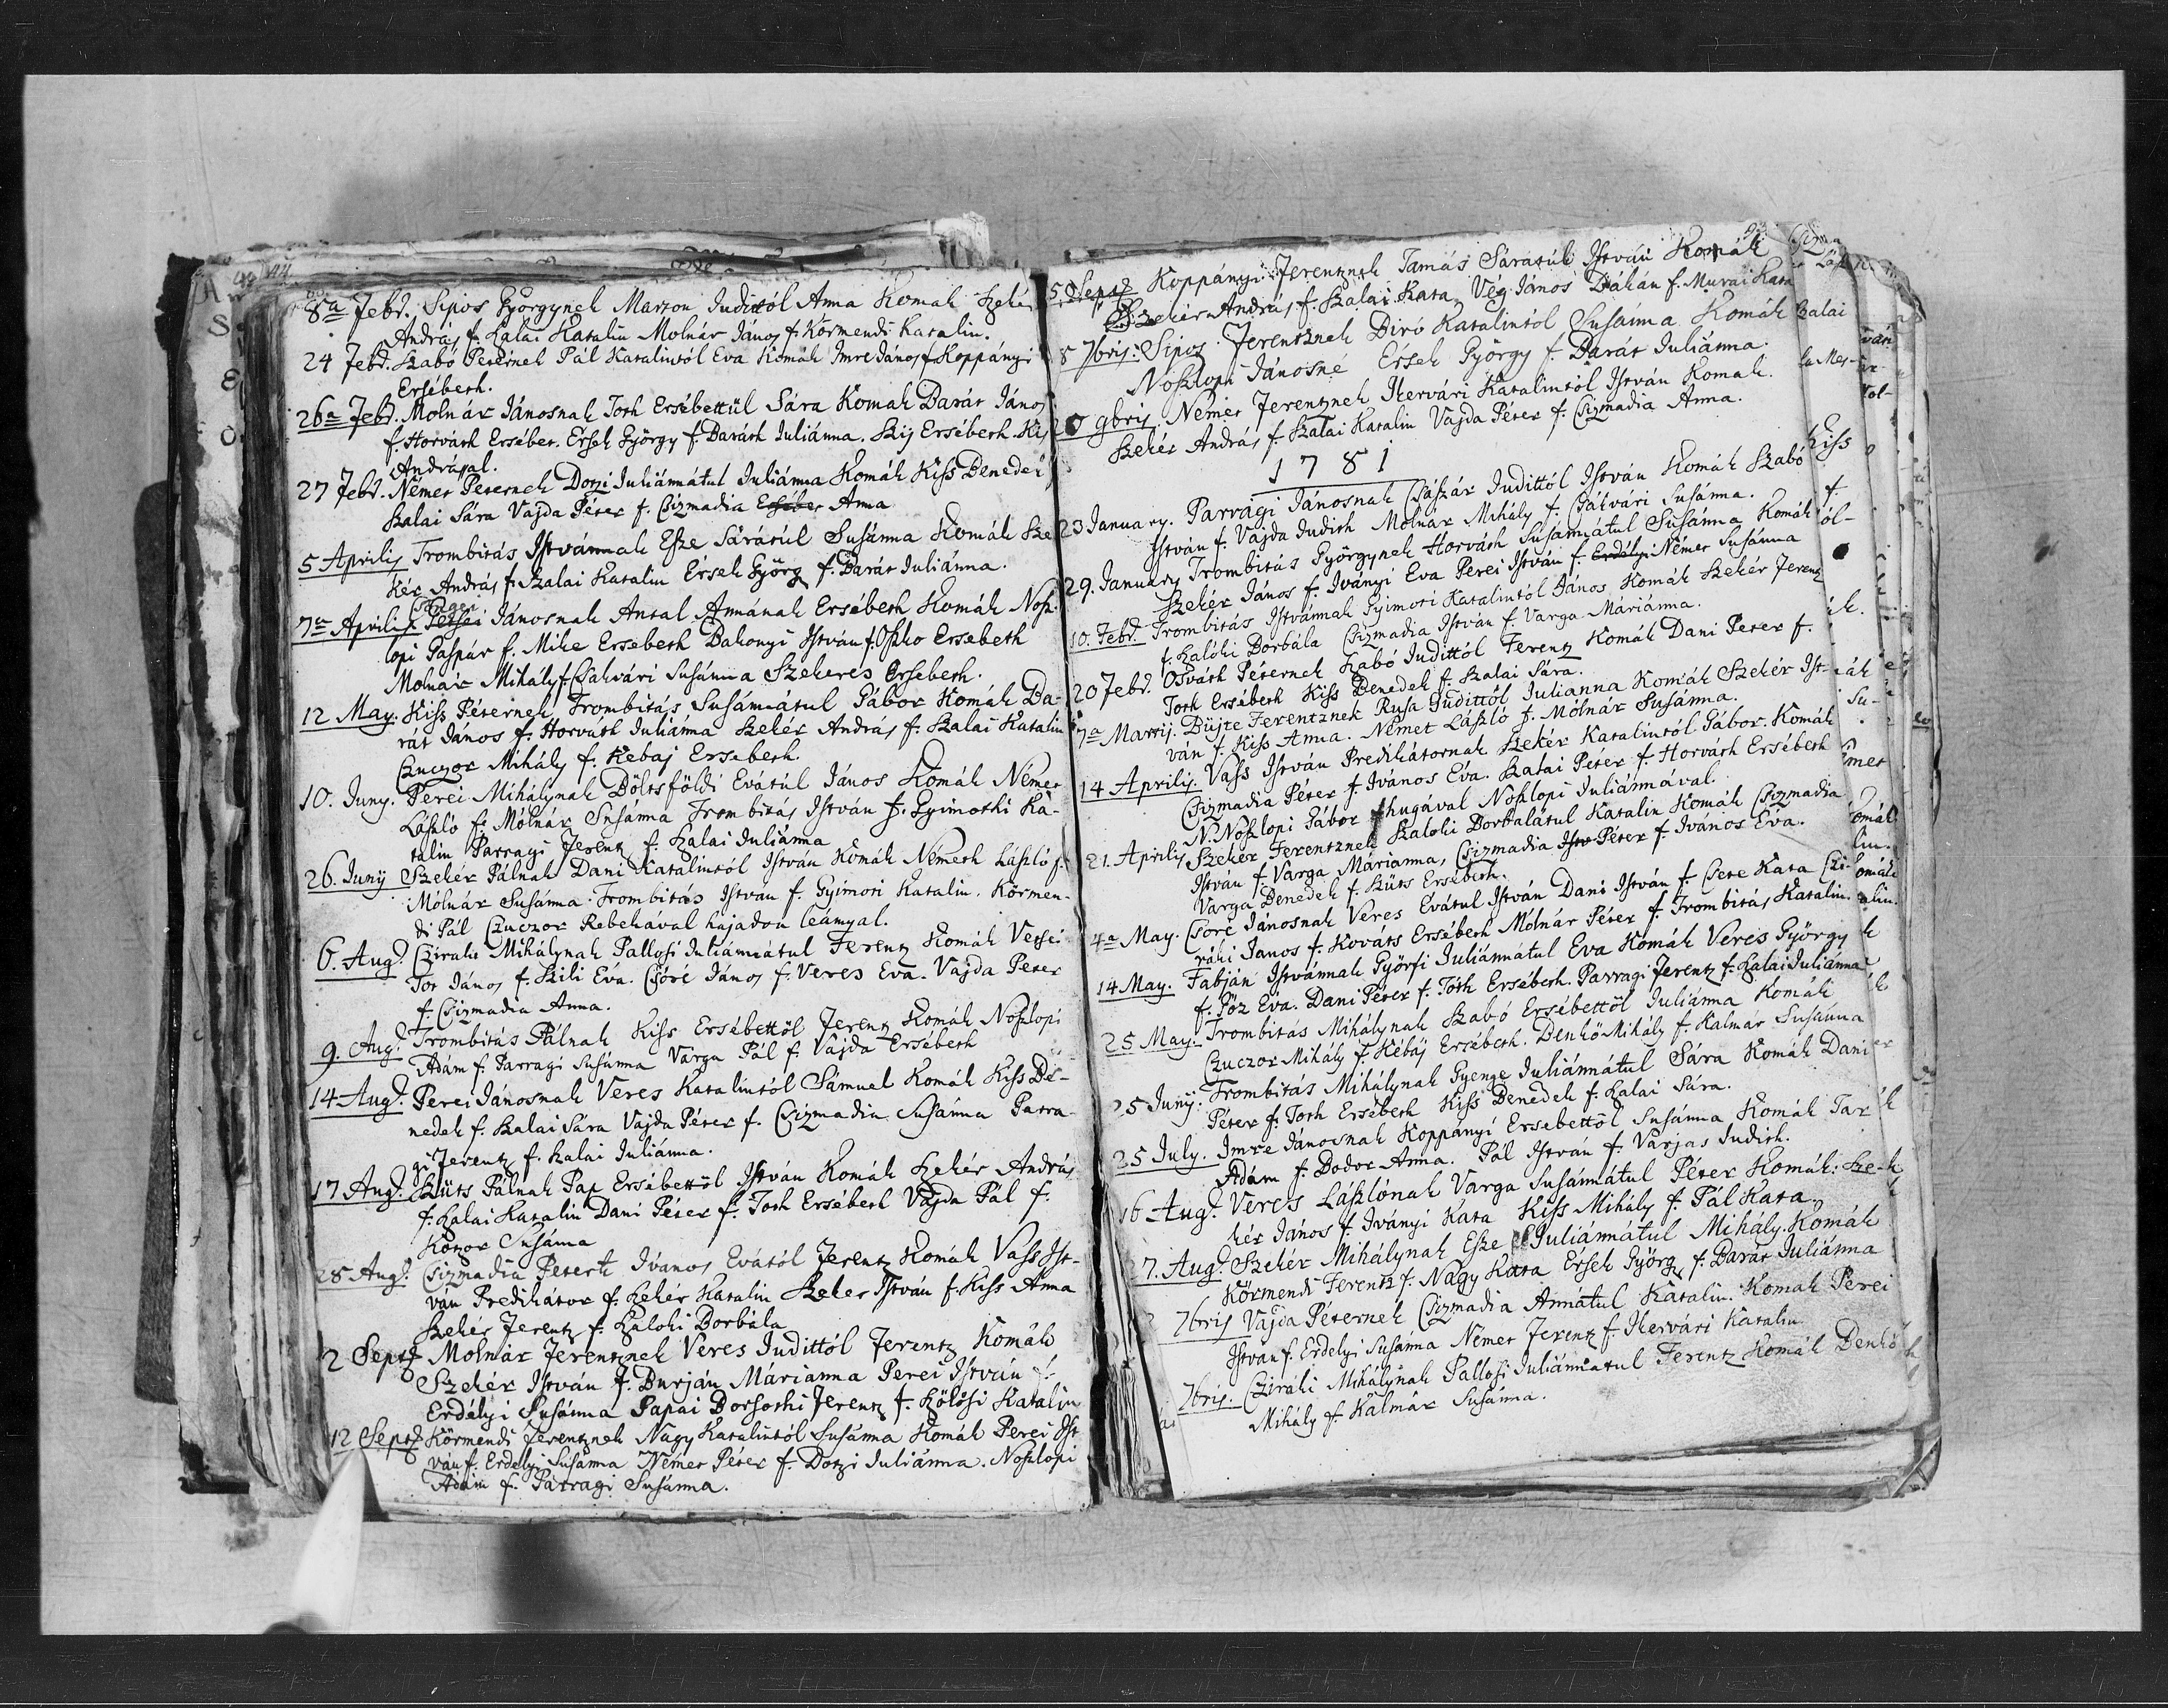 44.
8a Febr. Sipos Györgynek Marton Judittól Anna Komák Szekér
András f. Szalai Katalin Molnár János f. Körmendi Katalin.
24 Febr. Szabó Péternek Pál Katalintól Eva Komák Imre János f. Koppányi
Ersébeth.
26a Febr. Molnár Jánosnak Toth Ersébettül Sára Komák Barát János
f. Horváth Ersébet. Érsek György f. Baráth Juliánna. Kis Ersébeth. Kis
Andrással.
27 Febr. Német Péternek Dotzi Juliánnátul Juliánna Komák Kiss Benedek
Szalai Sára Vajda Péter f. Csizmadia Ersébet Anna
5 Aprilis Trombitás Istvánnak Esze Sárátúl Susánna Komák Sze
kér András f. Szalai Katalin Érsek Györg f. Barát Juliánna.
7a Aprilis Jánosnak Antal Annának Ersébeth Komák Nosz-
lopi Gáspár f. Mike Ersébeth Bakonyi István f. Oszko Ersebeth
Molnár Mihály f. Csákvári Susánna Szekeres Ersebeth.
12 May. Kiss Péternek Trombitás Susánnátul Gábor Komák Ba-
rát János f. Horváth Juliánna Szekér András f. Szalai Katalin
Czuczor Mihály f. Kebaj Ersebeth.
10. Juny. Perei Mihálynak Böltsföldi Evátúl János Komák Német
László f. Mólnár Susánna Trombitás István f. Gyimothi Ka-
talin Parragi Ferentz f. Szalai Juliánna
26. Junÿ Szekér Pálnak Dani Katalintól István Komák Németh László f.
Mólnár Susánna. Trombitás István f. Gyimoti Katalin. Körmen-
di Pál Czuczor Rebekával hajadon leányal.
6. Aug. Cziraki Mihálynak Pallosi Juliánnátul Ferentz Komák Vessei
Tot János f. Szili Eva. Csóre János f. Veres Eva. Vajda Peter
f. Csizmadia Anna.
9. Aug. Trombitás Pálnak Kiss Ersébettöl Ferentz Komák Noszlopi
Adám f. Parragi Susánna Varga Pál f. Vajda Ersébeth
14 Aug. Perei Jánosnak Veres Katalintól Sámuel Komák Kiss Be-
nedek f. Szalai Sára Vajda Péter f. Csizmadia Susánna Parra-
gi Ferentz f. Szalai Juliánna.
17 Aug. Szüts Pálnak Pap Ersébettöl István Komák Szekér András
f. Szalai Katalin Dani Péter f. Toth Ersébeth Vajda Pál f.
Kozor Susánna
28 Aug. Csizmadia Peterk Ivanos Evától Ferentz Komák Vass Ist-
ván Predikátor f. Szekér Katalin Szeker István f. Kiss Anna
Szekér Ferentz f. Szaloki Borbála
2 Sept. Molnár Ferentznek Veres Judittól Ferentz Komák
Szekér István f. Burján Márianna Perei István f.
Erdélyi Susánna Papai Borsoski Ferentz f. Szölösi Katalin
12 Sept. Körmendi Ferentznek Nagy Katalintól Susánna Komák Perei Ist
ván f. Erdelyi Susánna Német Péter f. Dotzi Juliánna. Noszlopi
Adám f. Parragi Susánna.
Sept. Koppányi Ferentznek Tamás Sárátúl István Komák
Szekér András f. Szalai Kata, Vég János Diákán f. Murai Kata
8 7bris: Sipos Ferentznek Biró Katalintól Susánna Komák
Noszlopi Jánosné Érsek György f. Barát Juliánna.
9bris Német Ferentznek Hervári Katalintól István Komák.
Szekér András f. Szalai Katalin Vajda Péter f. Csizmadia Anna.
1781
23 January. Parragi Jánosnak Császár Judittól István Komák Szabó
István f. Vajda Judith Molnár Mihály f. Csákvári Susánna.
29. January Trombitás Györgynek Horváth Susánnátul Susánna Komák
Szekér János f. Iványi Eva Perei István f. Erdélyi Német Susánna
10. Febr. Trombitás Istvánnak Gyimoti Katalintól János Komák Szekér Ferentz
f. Szalóki Borbála Csizmadia István f. Varga Máriánna.
20 Febr. Osváth Péternek Szabó Judittól Ferentz Komák Dani Peter f.
Toth Ersébeth Kiss Benedek f. Szalai Sára.
7a Martij. Büjte Ferentznek Rusa Judittól Julianna Komák Szekér Ist-
ván f. Kiss Anna. Német László f. Mólnár Susánna.
14 Aprilis Vass István Predikátornak Szekér Katalintól Gábor. Komák
Csizmadia Péter f. Ivános Éva. Szalai Péter f. Horváth Ersébeth
N. Noszlopi Gábor hugával Noszlopi Juliánnával.
21. Aprilis Szekér Ferentznek Szaloki Borbalátul Katalin Komák Csizmadia
István f. Varga Márianna, Csizmadia Istv Péter f. Ivános Eva.
Varga Benedek f. Szüts Ersébeth.
4a May. Csóre Jánosnak Veres Evátul István Dani István f. Csete Kata Czi-
ráki János f. Kováts Ersébeth Mólnár Péter f. Trombitás Katalin.
14 May. Fábján Istvánnak Györfi Juliánnátul Eva Komák Veres György
f. Póz Eva. Dani Péter f. Tóth Ersébeth. Parragi Ferentz f. Szalai Juliánna
25 May. Trombitás Mihálynak Szabó Ersébettöl Juliánna Komák
Czuczor Mihály f. Kébaj Ersébeth. Benkö Mihály f. Kalmár Susánna
25 Junÿ: Trombitás Mihálynak Gyenge Juliánnátul Sára Komák Dani
Péter f. Toth Ersébeth Kiss Benedek f. Szalai Sára.
25 July. Imre Jánosnak Koppányi Ersebettöl Susánna Komák Tar
Adám f. Bodor Anna. Pál István f. Varjas Judith.
16 Aug. Veres Lászlónak Varga Susánnátul Péter Komák: Sze-
kér János f. Iványi Kata Kiss Mihály f. Pál Kata.
7. Aug. Szekér Mihálynak Esze Juliánnátul Mihály. Komák
Körmendi Ferentz f. Nagy Kata Érsek Györg f. Barát Juliánna
7bris Vajda Péternek Csizmadia Annátul Katalin. Komák Perei
István f. Erdelyi Susánna Német Ferentz f. Hervári Katalin
7bris. Cziráki Mihálynak Pallosi Juliánnátul Ferentz Komák Benkö
Mihály f. Kalmár Susánna.